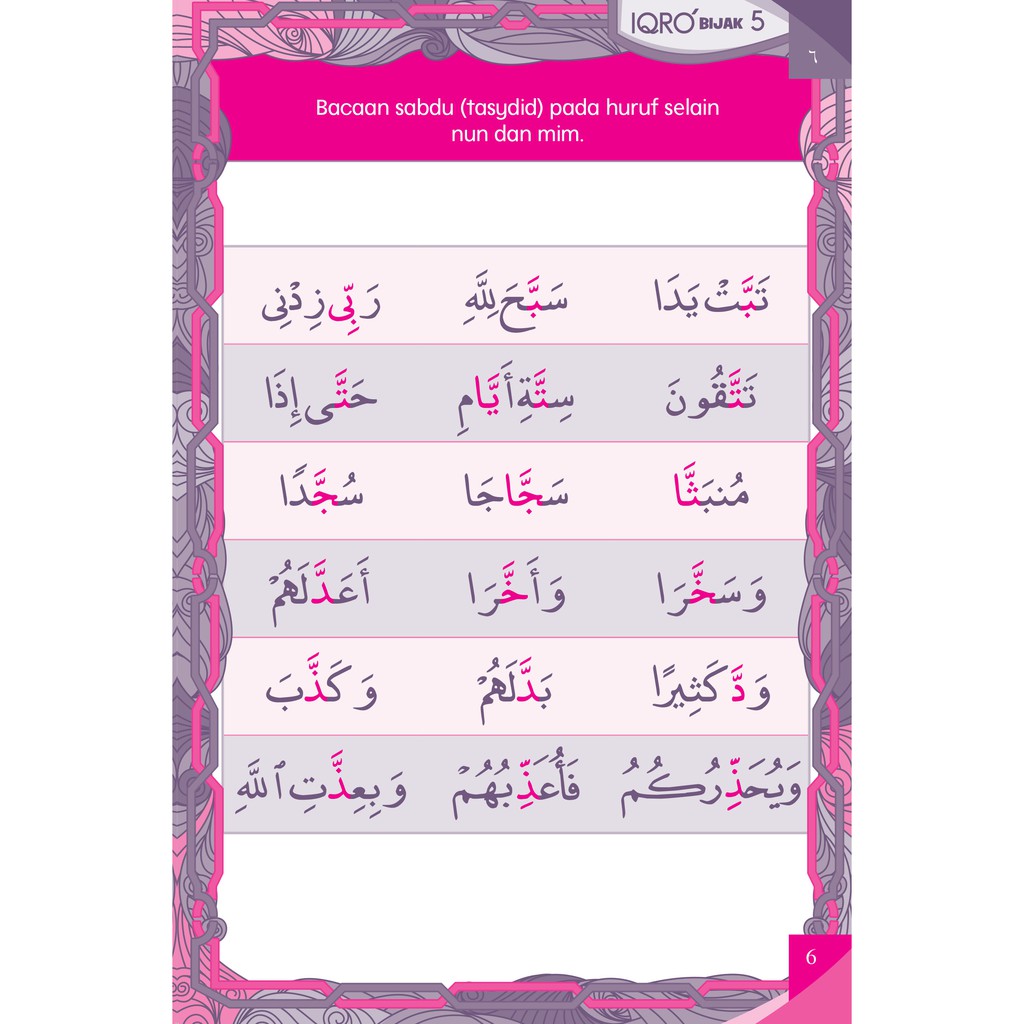 IQRO' BIJAK 5
٦
Bacaan sabdu (tasydid) pada huruf selain
nun dan mim.
تَبَّتْ يَدَا سَبَّحَ لِلَّهِ رَبِّى زِدْنِى
تَتَّقُونَ سِتَّةِ أَيَّامِ حَتَّى إِذَا
مُنبَثَّا سَجَّاجَا سُجَّدًا
وَسَخَّرَا وَأَخَّرَا أَعَدَّلَهُمْ
وَدَّ كَثِيرًا بَدَّلَهُمْ وَكَذَّبَ
وَيُحَذِّرُكُمُ فَأُعَذِّبُهُمْ وَبِعِذَّتِ ٱللَّهِ
6